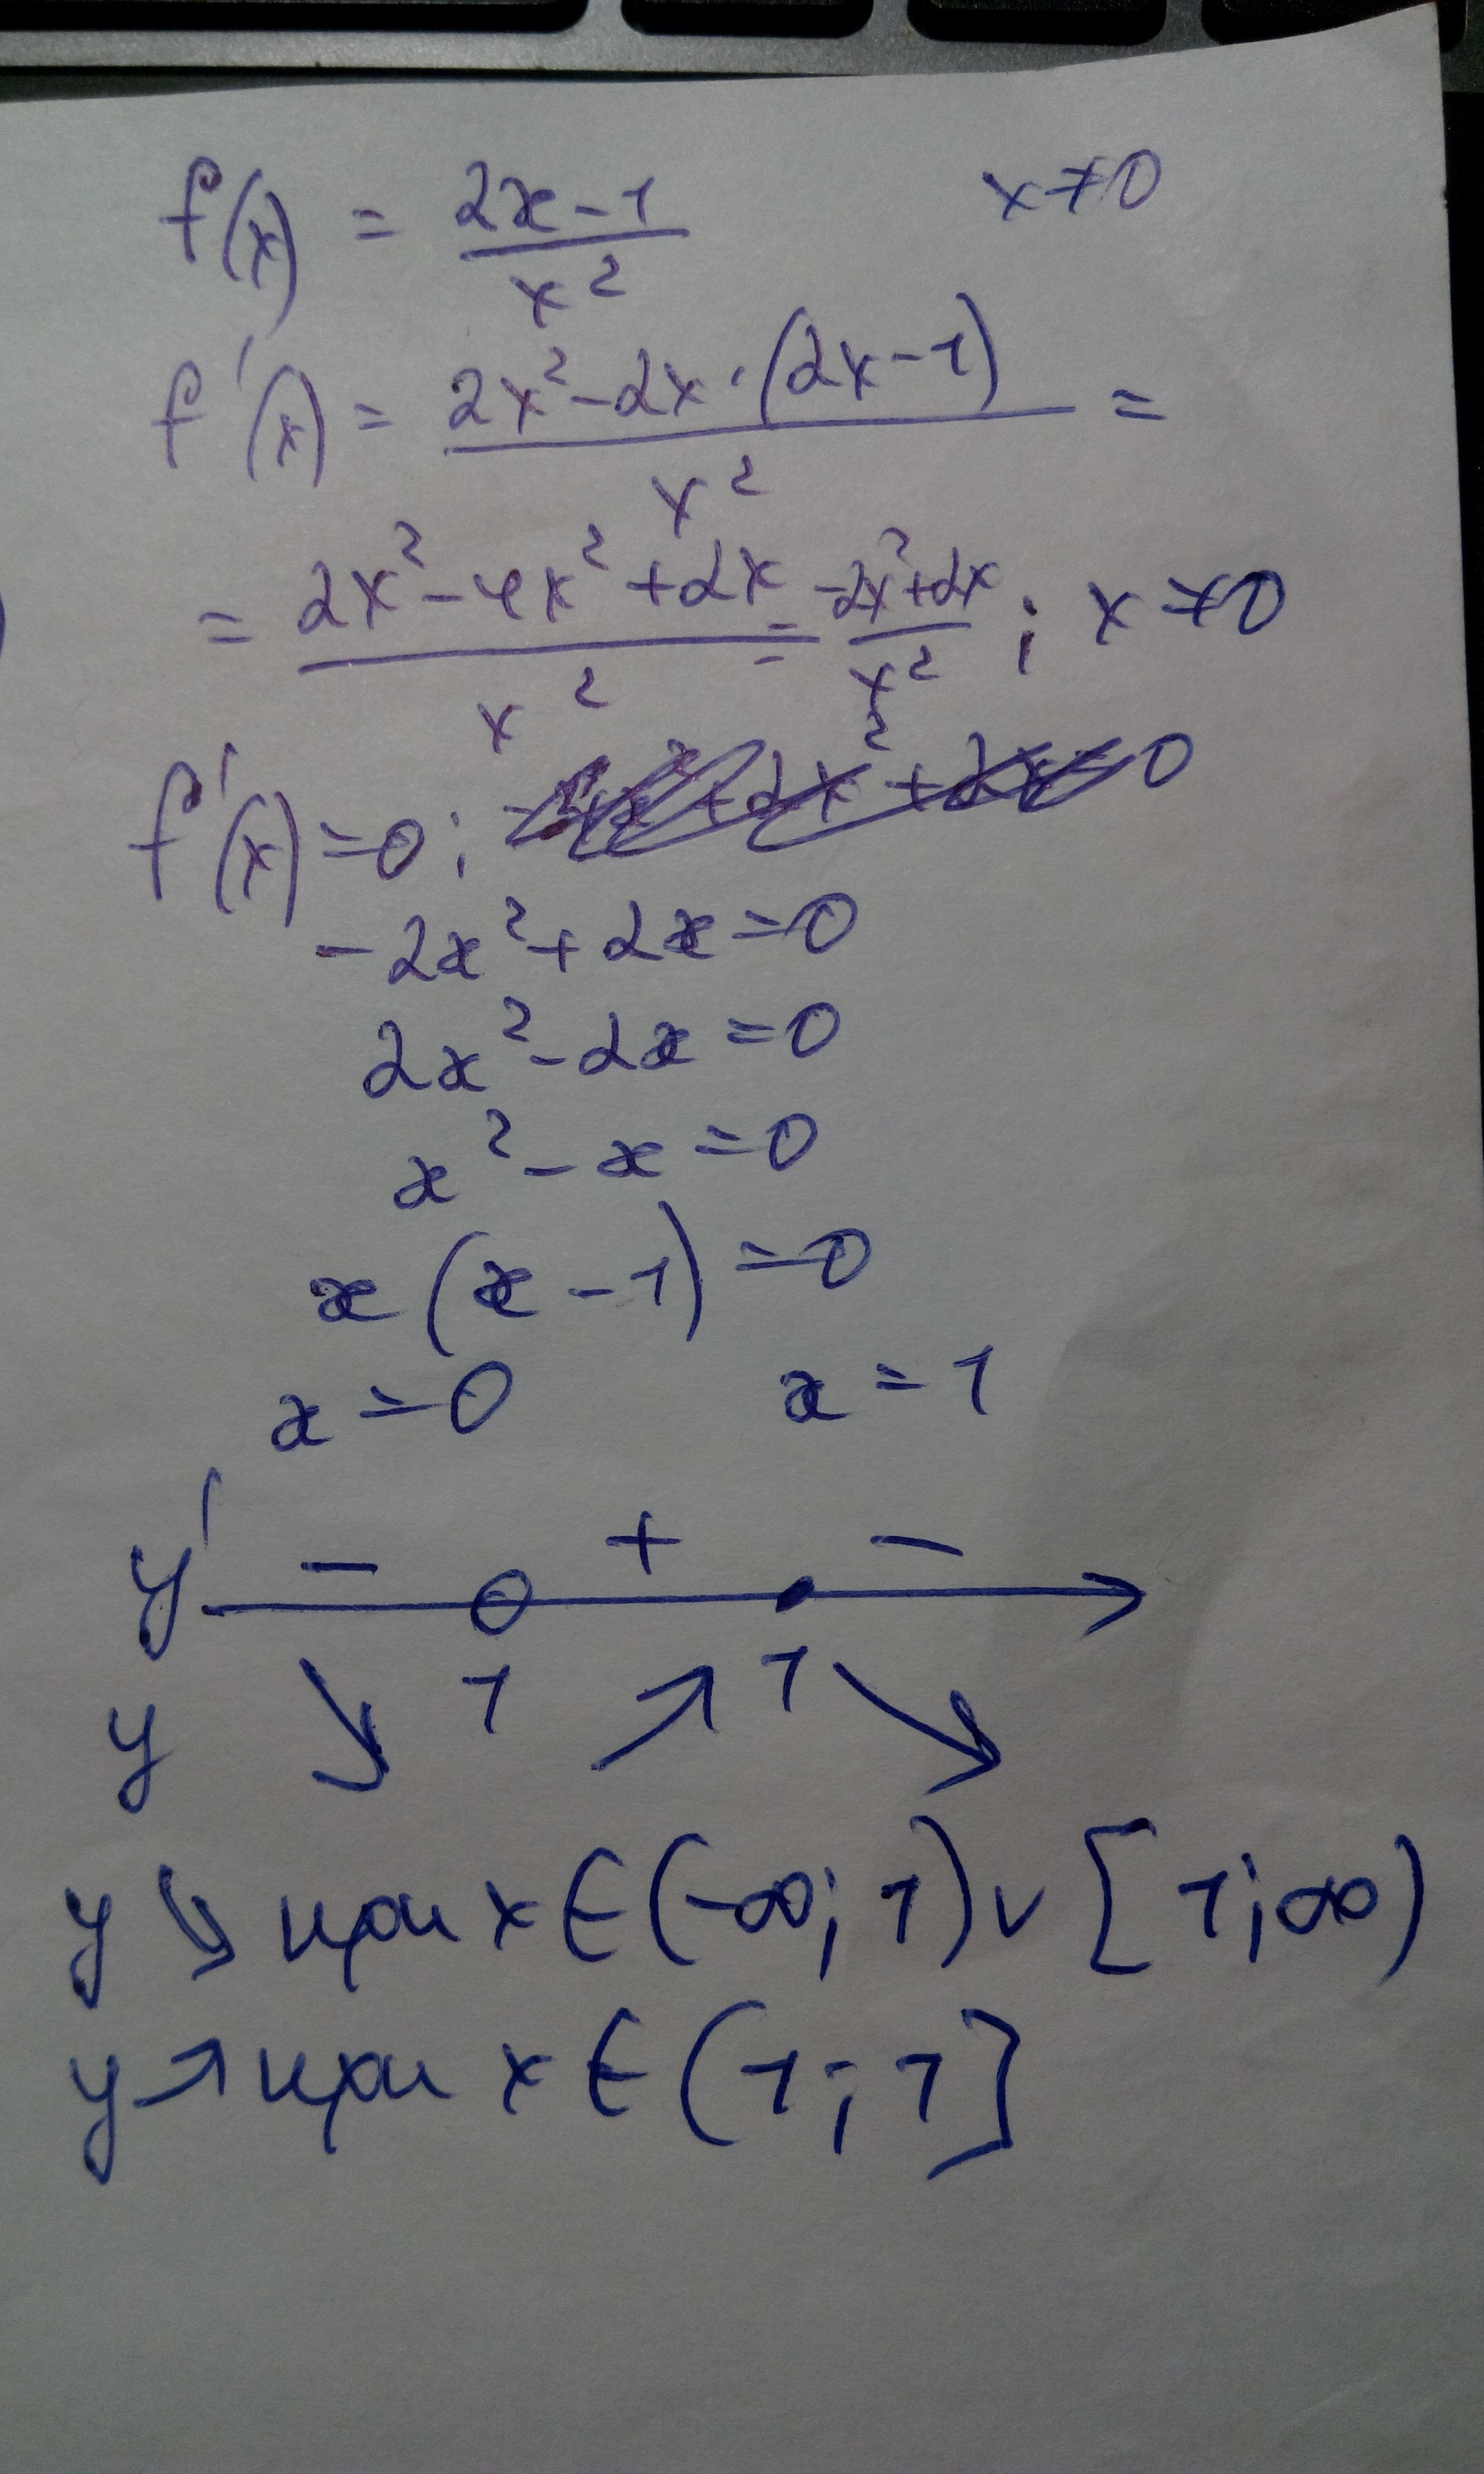 f(x) = (2x-1)/x² x≠0
f'(x) = (2x²-2x·(2x-1))/x² =
= (2x²-4x²+2x)/x² = (-2x²+2x)/x² ; x≠0
f'(x)=0;
-2x²+2x=0
2x²-2x=0
x²-x=0
x(x-1)=0
x=0 x=1
y' - + -
1 1
y ↘ ↗ ↘
y ↘ при x∈(-∞;1)∨[1;∞)
y ↗ при x∈(1;1]